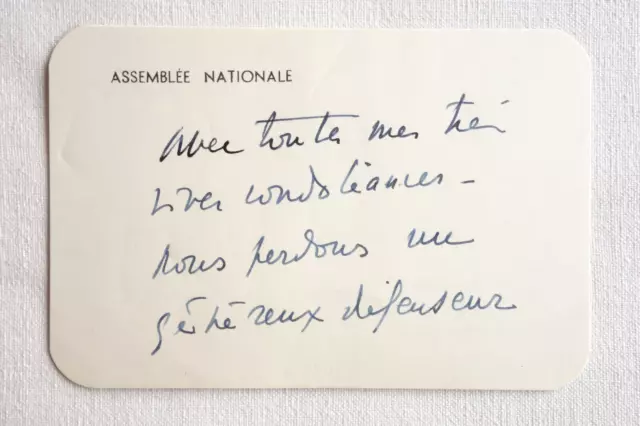 ASSEMBLÉE NATIONALE
Avec toutes mes très
vives condoléances -
nous perdons un
généreux défenseur